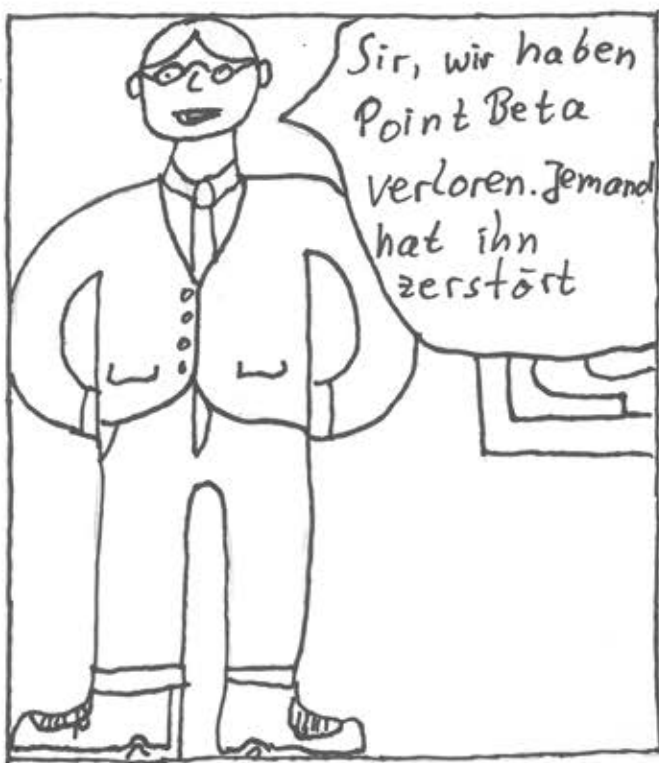 Sir, wir haben
Point Beta
verloren. Jemand
hat ihn
zerstört